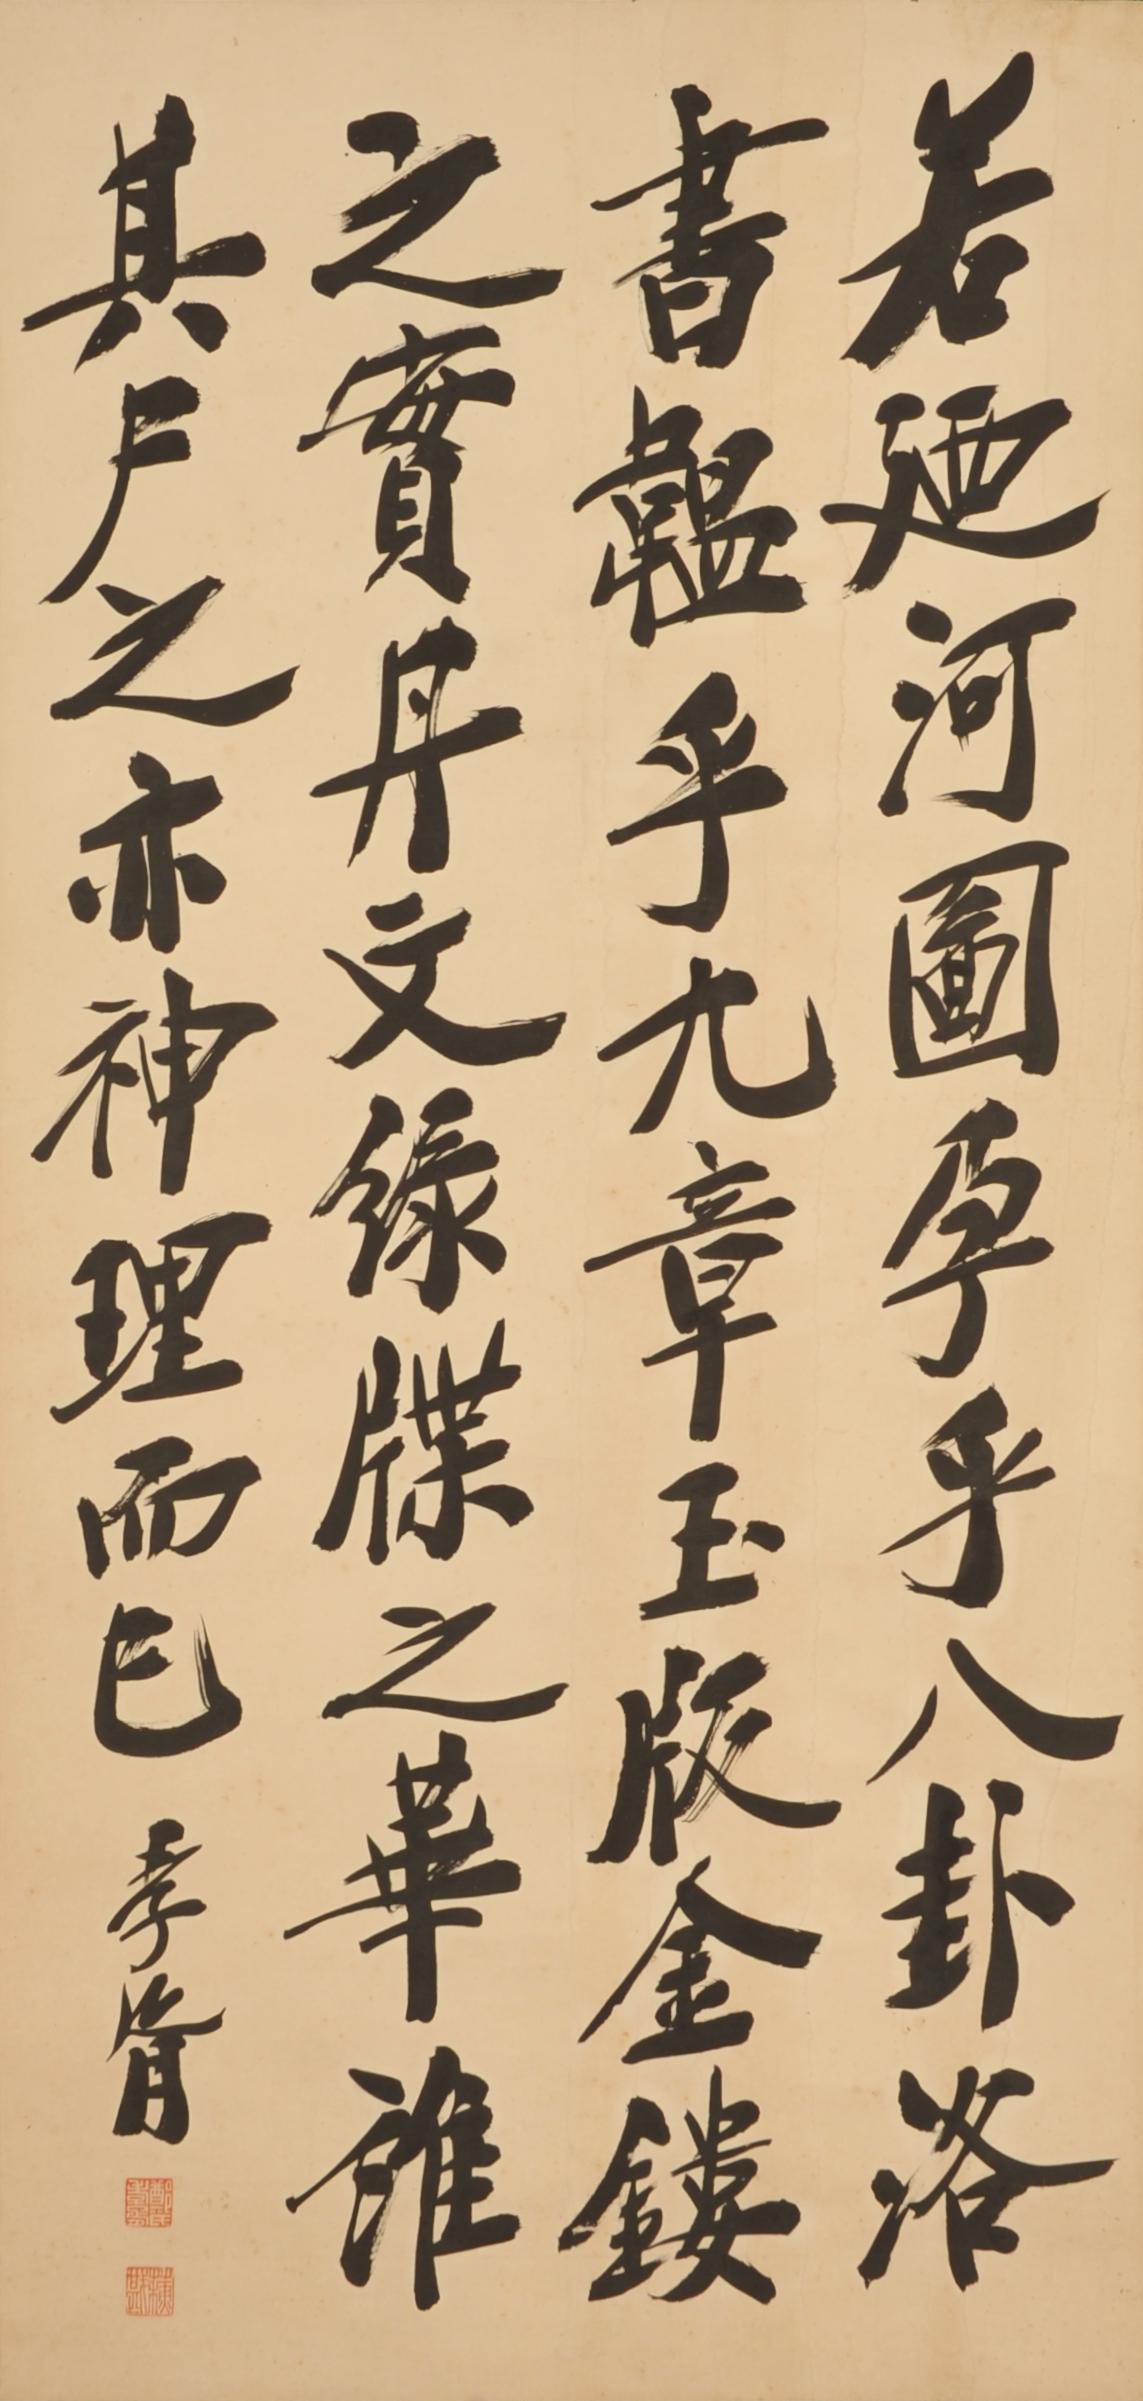 若廼河圖孕乎八卦洛
書韞乎九章玉版金鏤
之實丹文綠牒之華誰
其尸之亦神理而已
孝胥